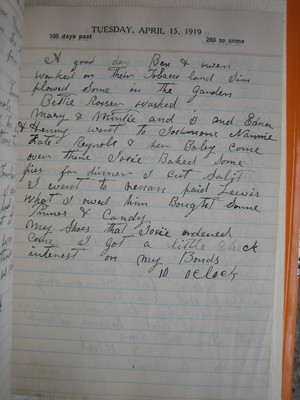 TUESDAY, APRIL 15, 1919
105 days past 260 to come
A good day Ben & owen
worked on their Tobacco land Jim
plowed Some in the Garden
Bettie washed
Mary & Mintie and I and Edna
& Henry went to Nannie
Kate Reynols & her Baby Come
over there Josie Baked Some
pies for dinner I Cut
I went to paid Lewis
what I owed him Bought Some
Prunes & Candy
My Shoes that Josie ordered
Come I got a little check
interest on my Bonds
10 oclock